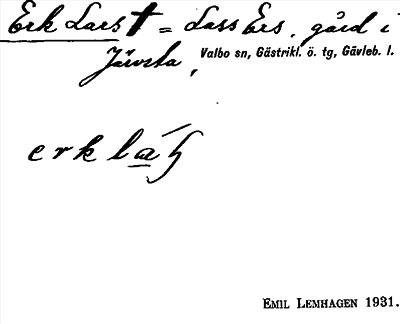 Erk Lars † = Lass Ers, gård i
Järvsta, Valbo sn, Gästrikl. ö. tg, Gävleb. l.
erk la
EMIL LEMHAGEN 1931.